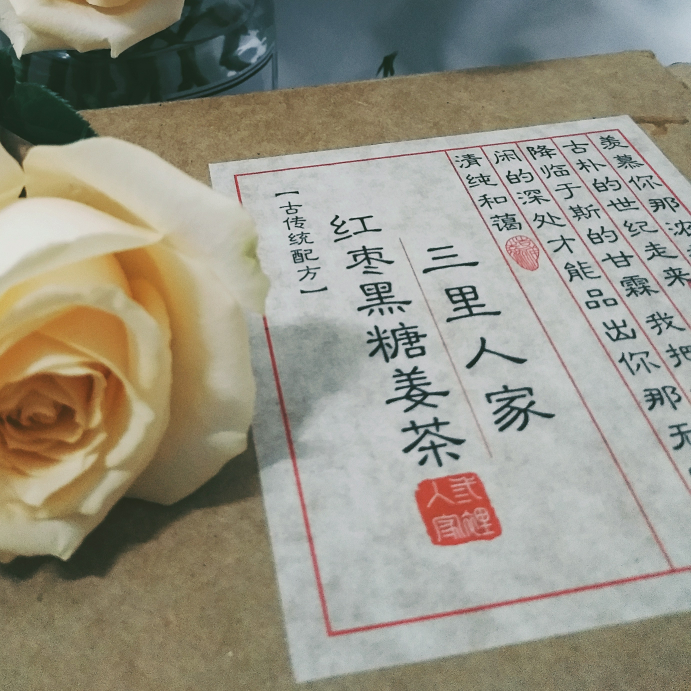 羡慕你那浓
古朴的世纪走来 我把
降临于斯的甘霖
闲的深处才能品出你那无
清纯和蔼
三里人家
红枣黑糖姜茶
【古传统配方】